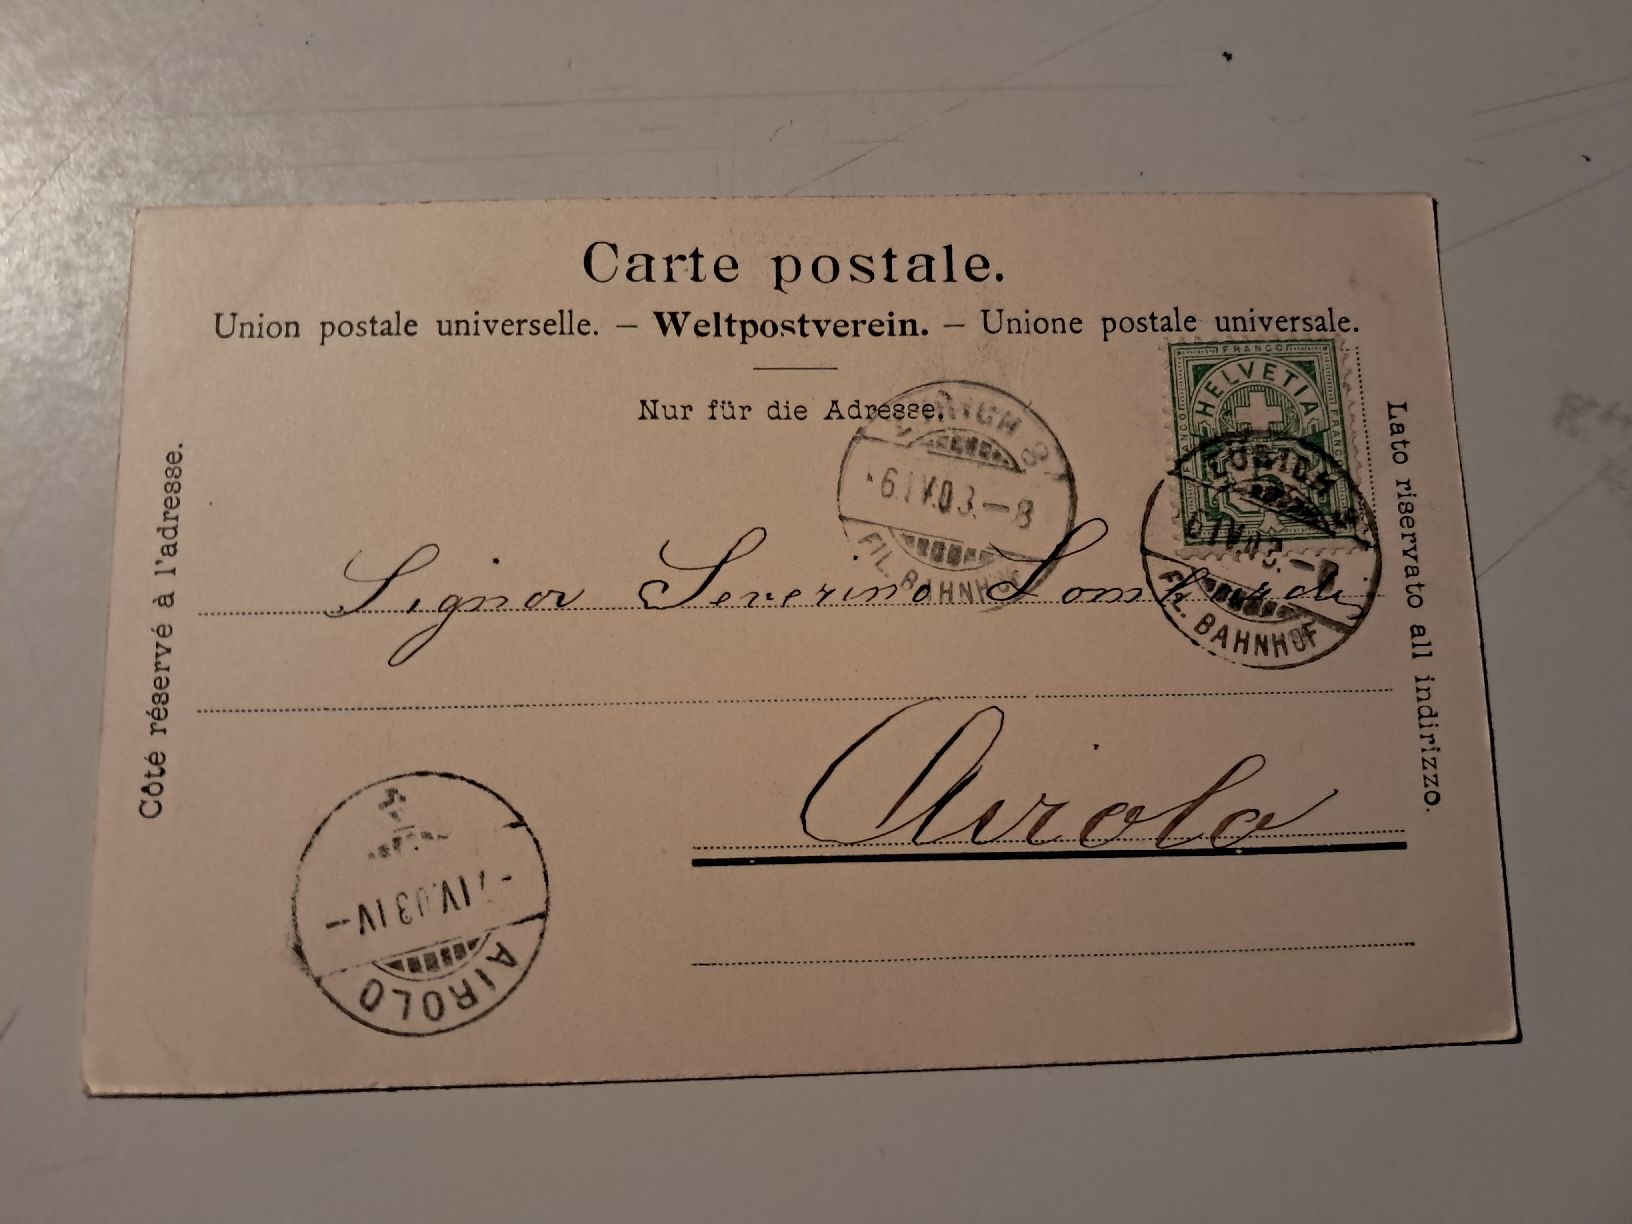 Carte postale.
Union postale universelle. – Weltpostverein. – Unione postale universale.
Nur für die Adresse.
Côté réservé à l'adresse.
Lato riservato all indirizzo.
FRANCO
HELVETIA
FRANCO
FRANCO
ZÜRICH 8
6.IV.03.–8
FIL. BAHNHOF
ZÜRICH
6.IV.03.–8
FIL. BAHNHOF
Signor Severino Lombardi
Airolo
-7.IV.03 IV–
AIROLO